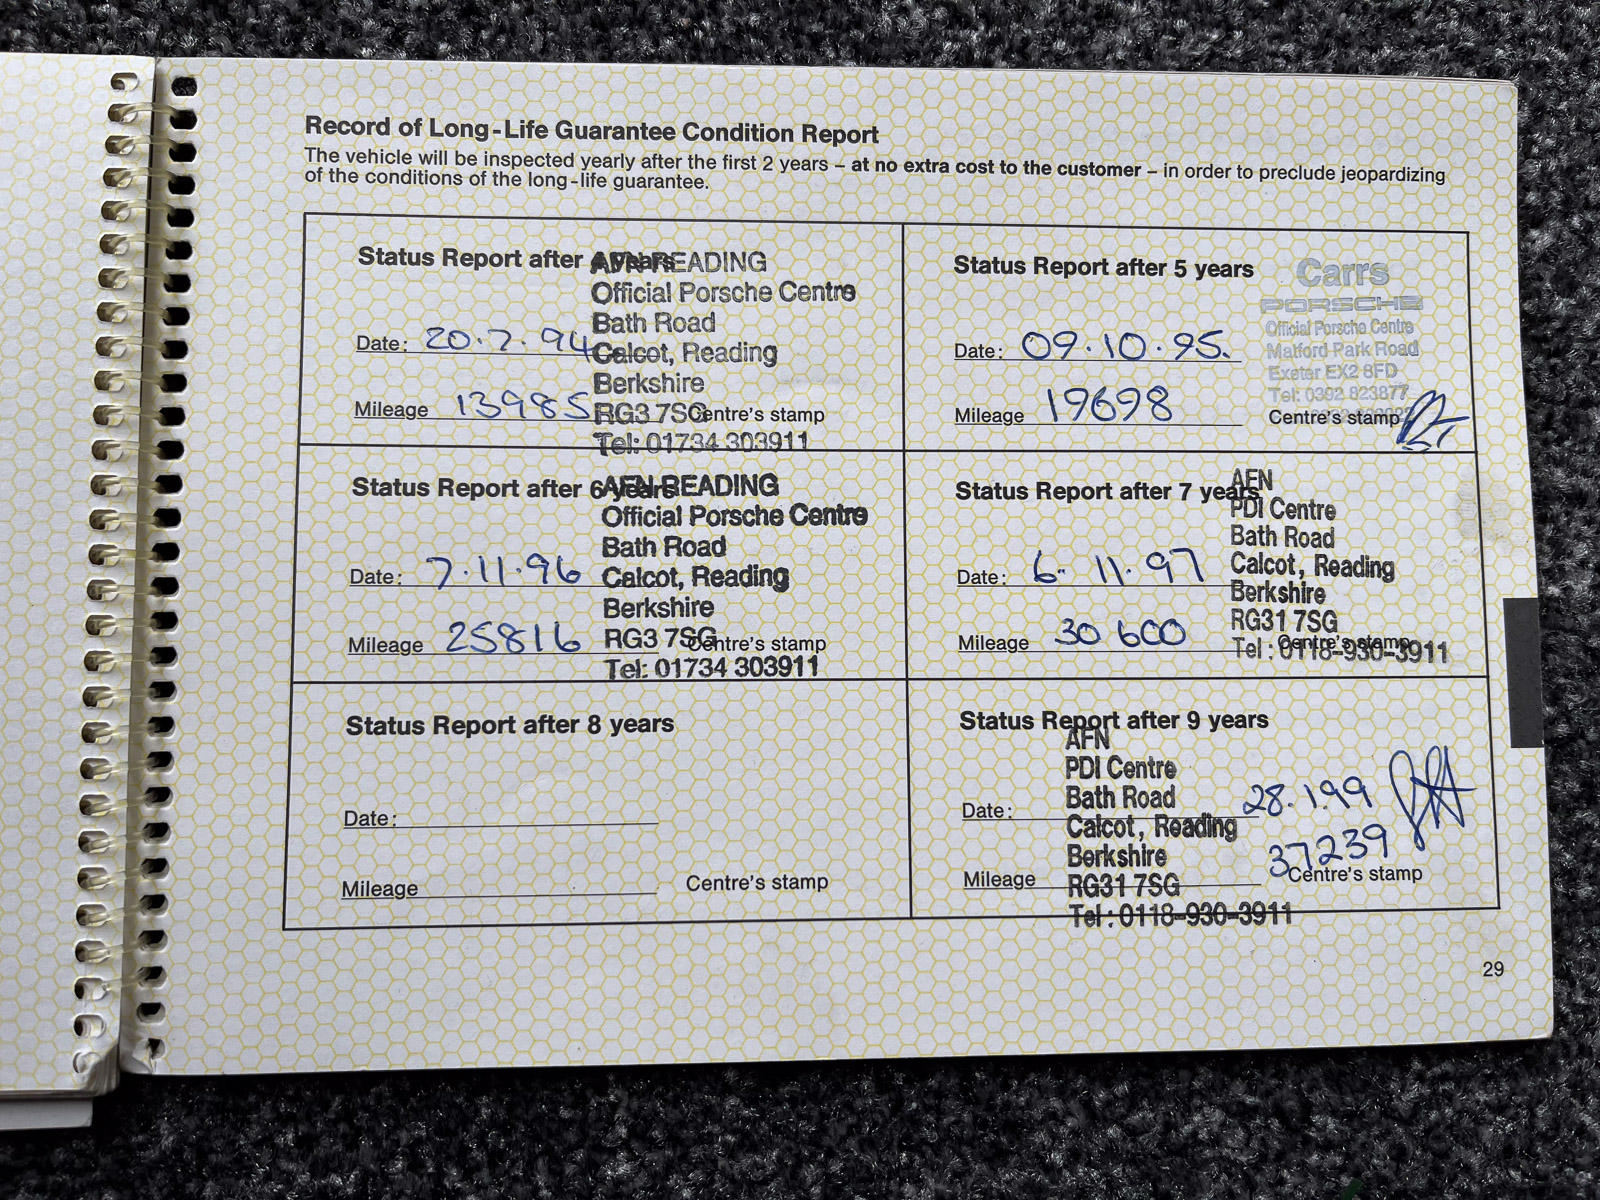 Record of Long-Life Guarantee Condition Report
The vehicle will be inspected yearly after the first 2 years – at no extra cost to the customer – in order to preclude jeopardizing
of the conditions of the long-life guarantee.
Status Report after 4 years
AFN READING
Official Porsche Centre
Bath Road
Calcot, Reading
Berkshire
RG3 7SG
Tel: 01734 303911
Date: 20.7.94
Mileage 13985
Centre's stamp
Status Report after 5 years
Carrs
PORSCHE
Official Porsche Centre
Matford Park Road
Exeter EX2 8FD
Tel: 0392 823877
Date: 09.10.95.
Mileage 19698
Centre's stamp
Status Report after 6 years
AFN READING
Official Porsche Centre
Bath Road
Calcot, Reading
Berkshire
RG3 7SG
Tel: 01734 303911
Date: 7.11.96
Mileage 25816
Centre's stamp
Status Report after 7 years
AFN
PDI Centre
Bath Road
Calcot, Reading
Berkshire
RG31 7SG
Tel: 0118-930-3911
Date: 6.11.97
Mileage 30600
Centre's stamp
Status Report after 8 years
Date:
Mileage
Centre's stamp
Status Report after 9 years
AFN
PDI Centre
Bath Road
Calcot, Reading
Berkshire
RG31 7SG
Tel: 0118-930-3911
Date: 28.1.99
Mileage 37239
Centre's stamp
29